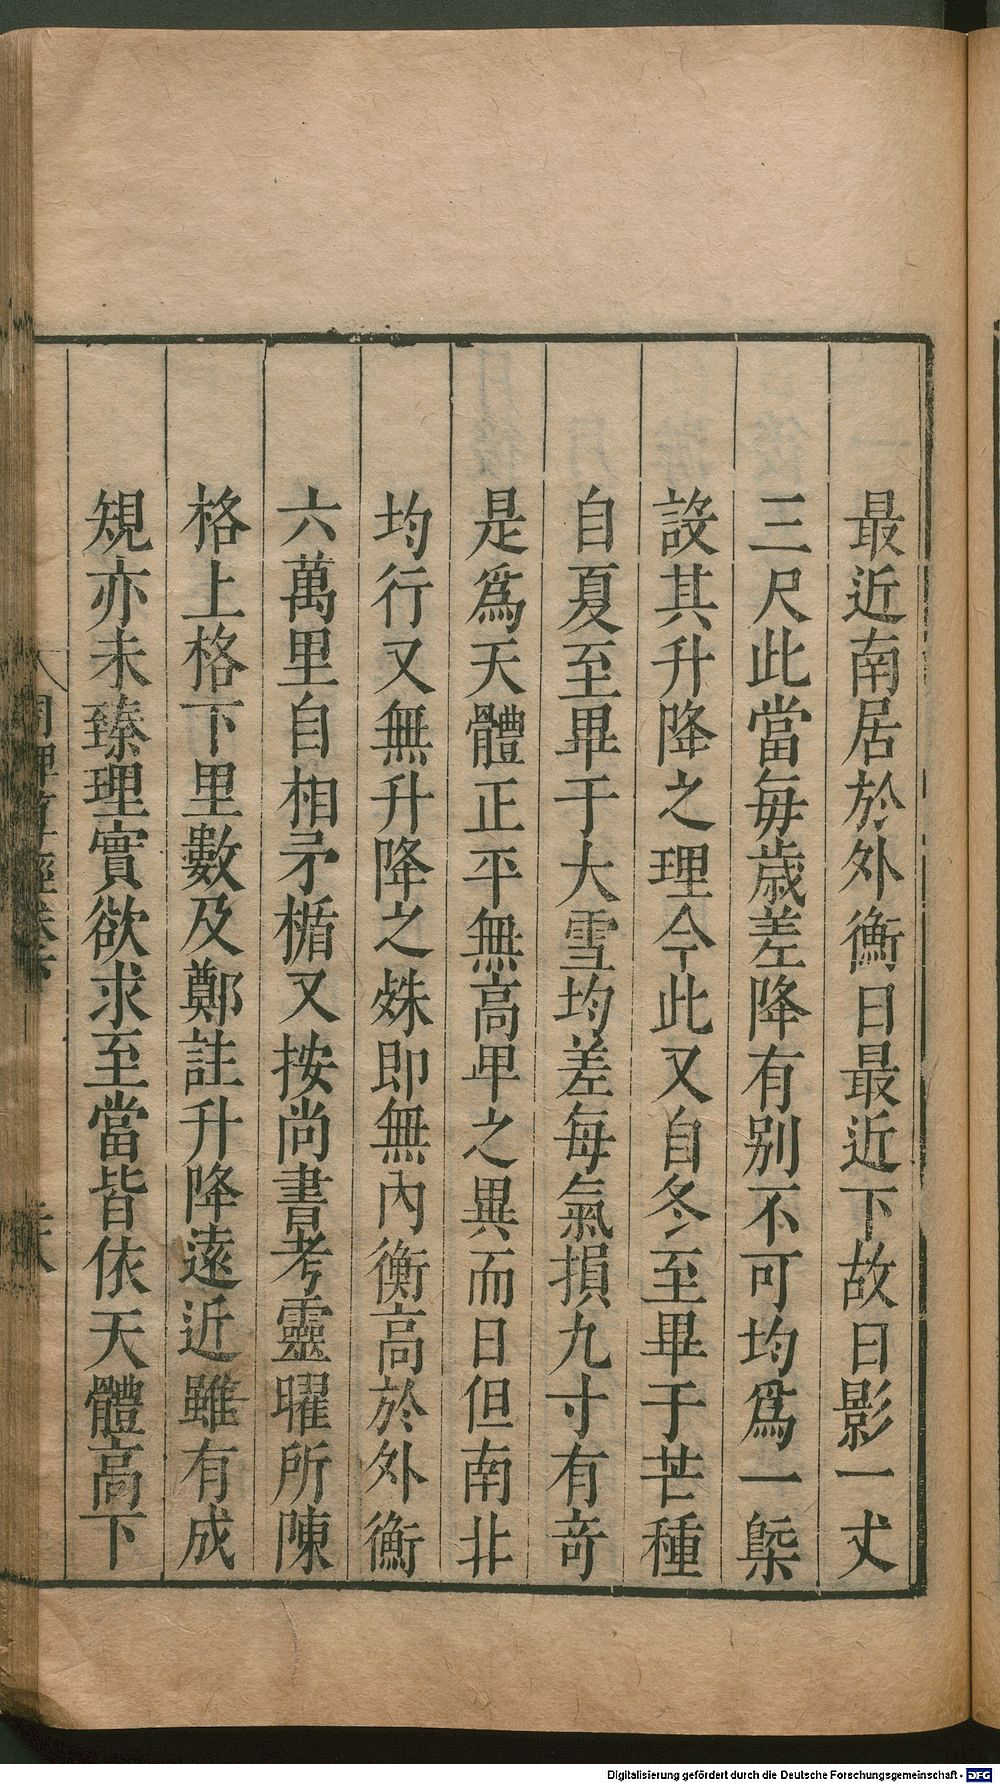 最近南居於外衡日最近下故日影一丈
三尺此當每歲差降有别不可均爲一槩
設其升降之理今此又自冬至畢于芒種
自夏至畢于大雪均差每氣損九寸有竒
是爲天體正平無高𤰞之異而日但南北
均行又無升降之殊即無內衡高於外衡
六萬里自相矛楯又按尚書考靈曜所陳
格上格下里數及鄭註升降遠近雖有成
規亦未臻理實欲求至當皆依天體高下
周髀算經卷下
Digitalisierung gefördert durch die Deutsche Forschungsgemeinschaft - DFG